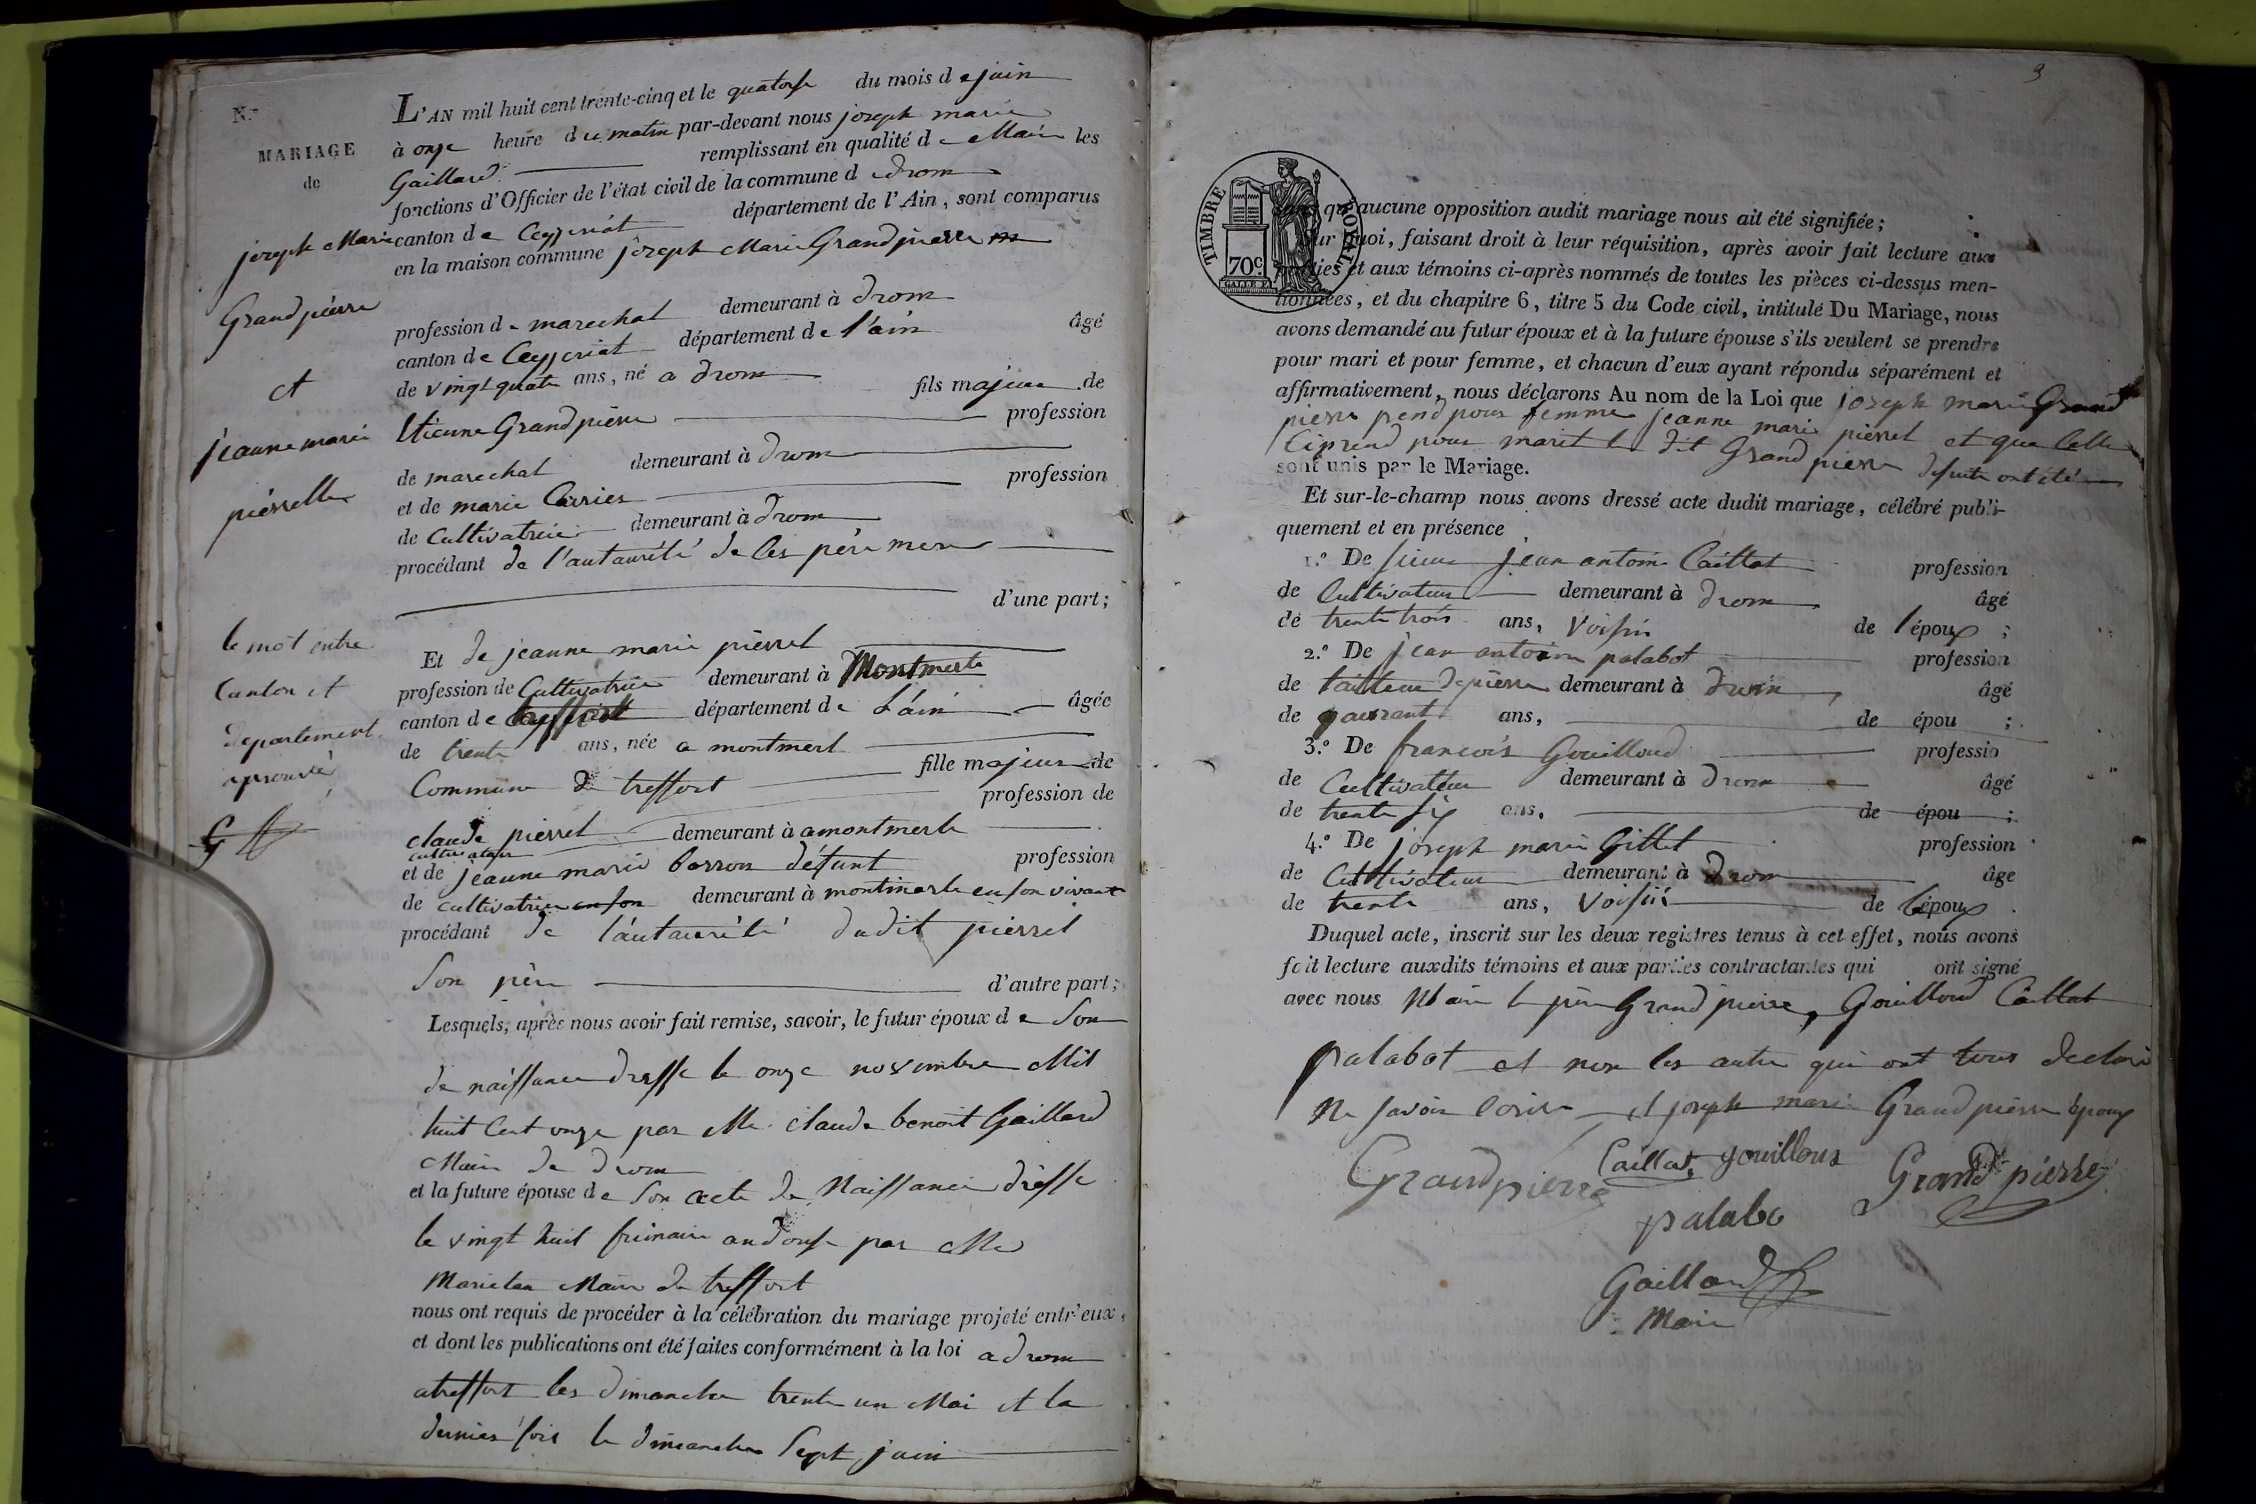 N.º
MARIAGE
de
joseph Marie
Grandpierre
et
jeanne marie
pierrelle
le mot entre
Canton et
departement.
aprouvé
L'AN mil huit cent trente-cinq et le quatorse du mois de juin
à onze heure du matin par-devant nous joseph marie
Gaillard remplissant en qualité de Maire les
fonctions d'Officier de l'état civil de la commune de drom
canton de Ceyzeriat département de l'Ain, sont comparus
en la maison commune joseph Marie Grandpierre
profession de marechal demeurant à drom
canton de Ceyzeriat département de l'ain âgé
de vingt quatre ans, né a drom fils majeur de
Etienne Grandpierre profession
de marechal demeurant à drom
et de marie Carrier profession
de Cultivatrice demeurant à drom
procédant de l'autaurité de Ces père mere
d'une part;
Et de jeanne marie pierrel
profession de Cultivatrice demeurant à Montmerle
canton de département de L'ain âgée
de trente ans, née a montmerl
Commune de treffort fille majeur de
claude pierrel profession de
cultivateur demeurant à amontmerle
et de jeanne marie borron défunt profession
de cultivatrice en son demeurant à montmerle en son vivant
procédant de l'autaurité dudit pierrel
Son père d'autre part;
Lesquels, après nous avoir fait remise, savoir, le futur époux de Son
de naissance dresse le onze novembre Mil
huit Cent onze par Me claude benoit Gaillard
Maire de drom
et la future épouse de Son acte de Naissance dresse
le vingt huit frimaire an douse par Me
Marieton Maire de treffort
nous ont requis de procéder à la célébration du mariage projeté entr'eux,
et dont les publications ont été faites conformément à la loi a drom
atreffort les dimanche trente un Mai et la
dernier fois le dimanche Sept juin
3
TIMBRE ROYAL
70c
sans qu'aucune opposition audit mariage nous ait été signifiée;
Sur quoi, faisant droit à leur réquisition, après avoir fait lecture aux
parties et aux témoins ci-après nommés de toutes les pièces ci-dessus men-
tionnées, et du chapitre 6, titre 5 du Code civil, intitulé Du Mariage, nous
avons demandé au futur époux et à la future épouse s'ils veulent se prendre
pour mari et pour femme, et chacun d'eux ayant répondu séparément et
affirmativement, nous déclarons Au nom de la Loi que joseph marie Grand
pierre prend pour femme jeanne marie pierrel et que Celle
Ci prend pour marit le dit Grandpierre desuite ont été
sont unis par le Mariage.
Et sur-le-champ nous avons dressé acte dudit mariage, célébré publi-
quement et en présence
1.º De sieur jean antoine Caillat profession
de Cultivateur demeurant à drom âgé
de trente trois ans, Voisin de l'époux ;
2.º De jean antoine palabot profession
de tailleur de pierre demeurant à drom âgé
de quarante ans, de épou ;
3.º De francois Gouilloud professio
de Cultivateur demeurant à drom âgé
de trente six ans, de épou ;
4.º De joseph marie Gillet profession
de Cultivateur demeurant à Drom âge
de trente ans, Voisin de l'époux
Duquel acte, inscrit sur les deux registres tenus à cet effet, nous avons
fait lecture auxdits témoins et aux parties contractantes qui ont signé
avec nous Maire le père Grandpierre, Gouilloud Caillat
palabot et non les autre qui ont tous declaré
Ne savoir Ecrire et joseph marie Grandpierre époux
Grandpierre Caillat gouilloux Grandpierre
palabo
Gaillard
Maire